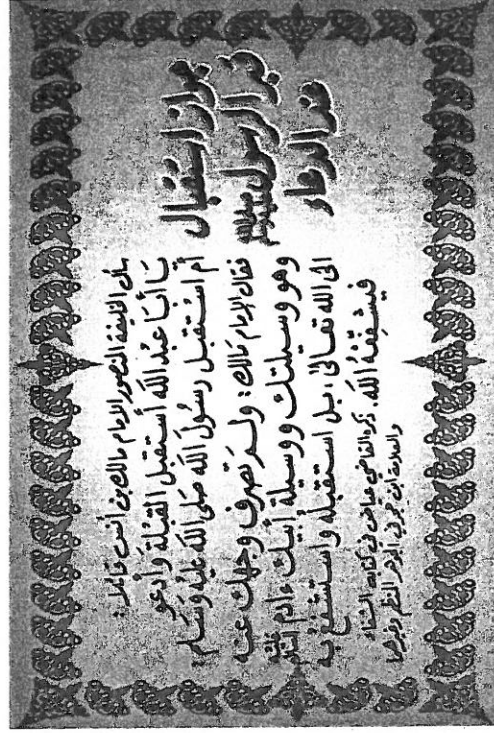 جواز استقبال
قبر الرسول صلى الله عليه وسلم
عند الدعاء
سأل الخليفة المنصور الإمام مالك بن أنس قائلا:
يَا أبَا عَبْدَ اللَّه أستقبل القبْلَةِ وَأدعو
أم اسْتقبل رسُولَ اللَّه صَلى اللَّه عَليْهُ وَسَلم
فقال الإمام مَالك: ولمَ تصرف وجهك عنه
وهو وسيلتك ووسيلة أبيك ءادم عليه السلام
الى الله تعالى، بل استقبله واستشفع به
فيشفّعْهُ اللَّه. ذكره القاضي عياض في كتابه الشفاء
والعلامة ابن حجر في الجوهر المنظم وغيرهما